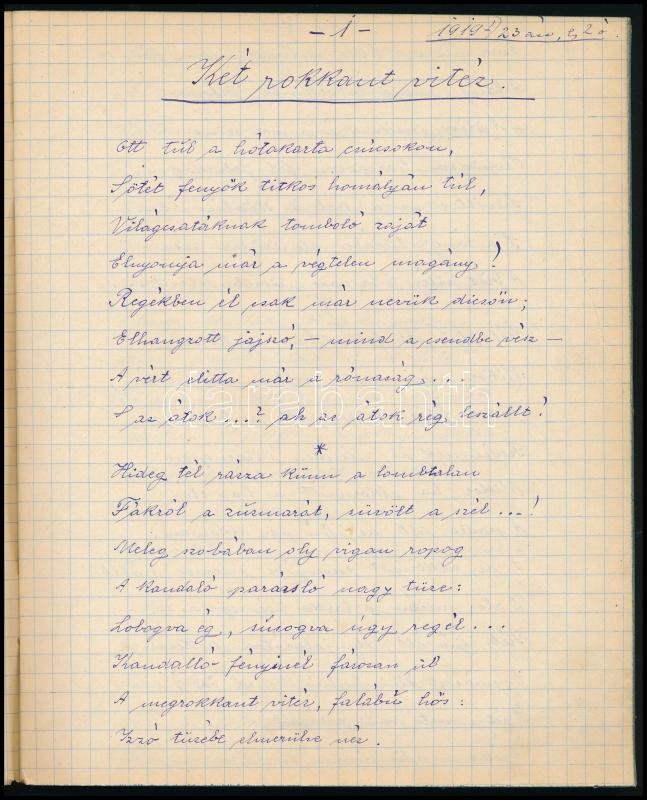 - 1 -
1919 23 án,
Két rokkant vitéz.
Ott túl a hótakarta csúcsokon,
Sötét fenyők titkos homályán túl,
Világcsatáknak tomboló zaját
Elnyomja már a végtelen magány!
Regékben él csak már nevük dicsőn;
Elhangzott jajszó, - mind a csendbe vész -
A vért elitta már a rónaság...
S az átok...? ah az átok rég leszállt!
*
Hideg tél rázza künn a lombtalan
Fákról a zúzmarát, süvölt a szél...!
Meleg szobában oly vigan ropog
A kandaló parázsló nagy tüze:
Lobogva ég, susogva úgy regél...
Kandalló fényinél fázosan ül
A megrokkant vitéz, falábú hős:
Izzó tüzébe elmerülve néz.
darabanth